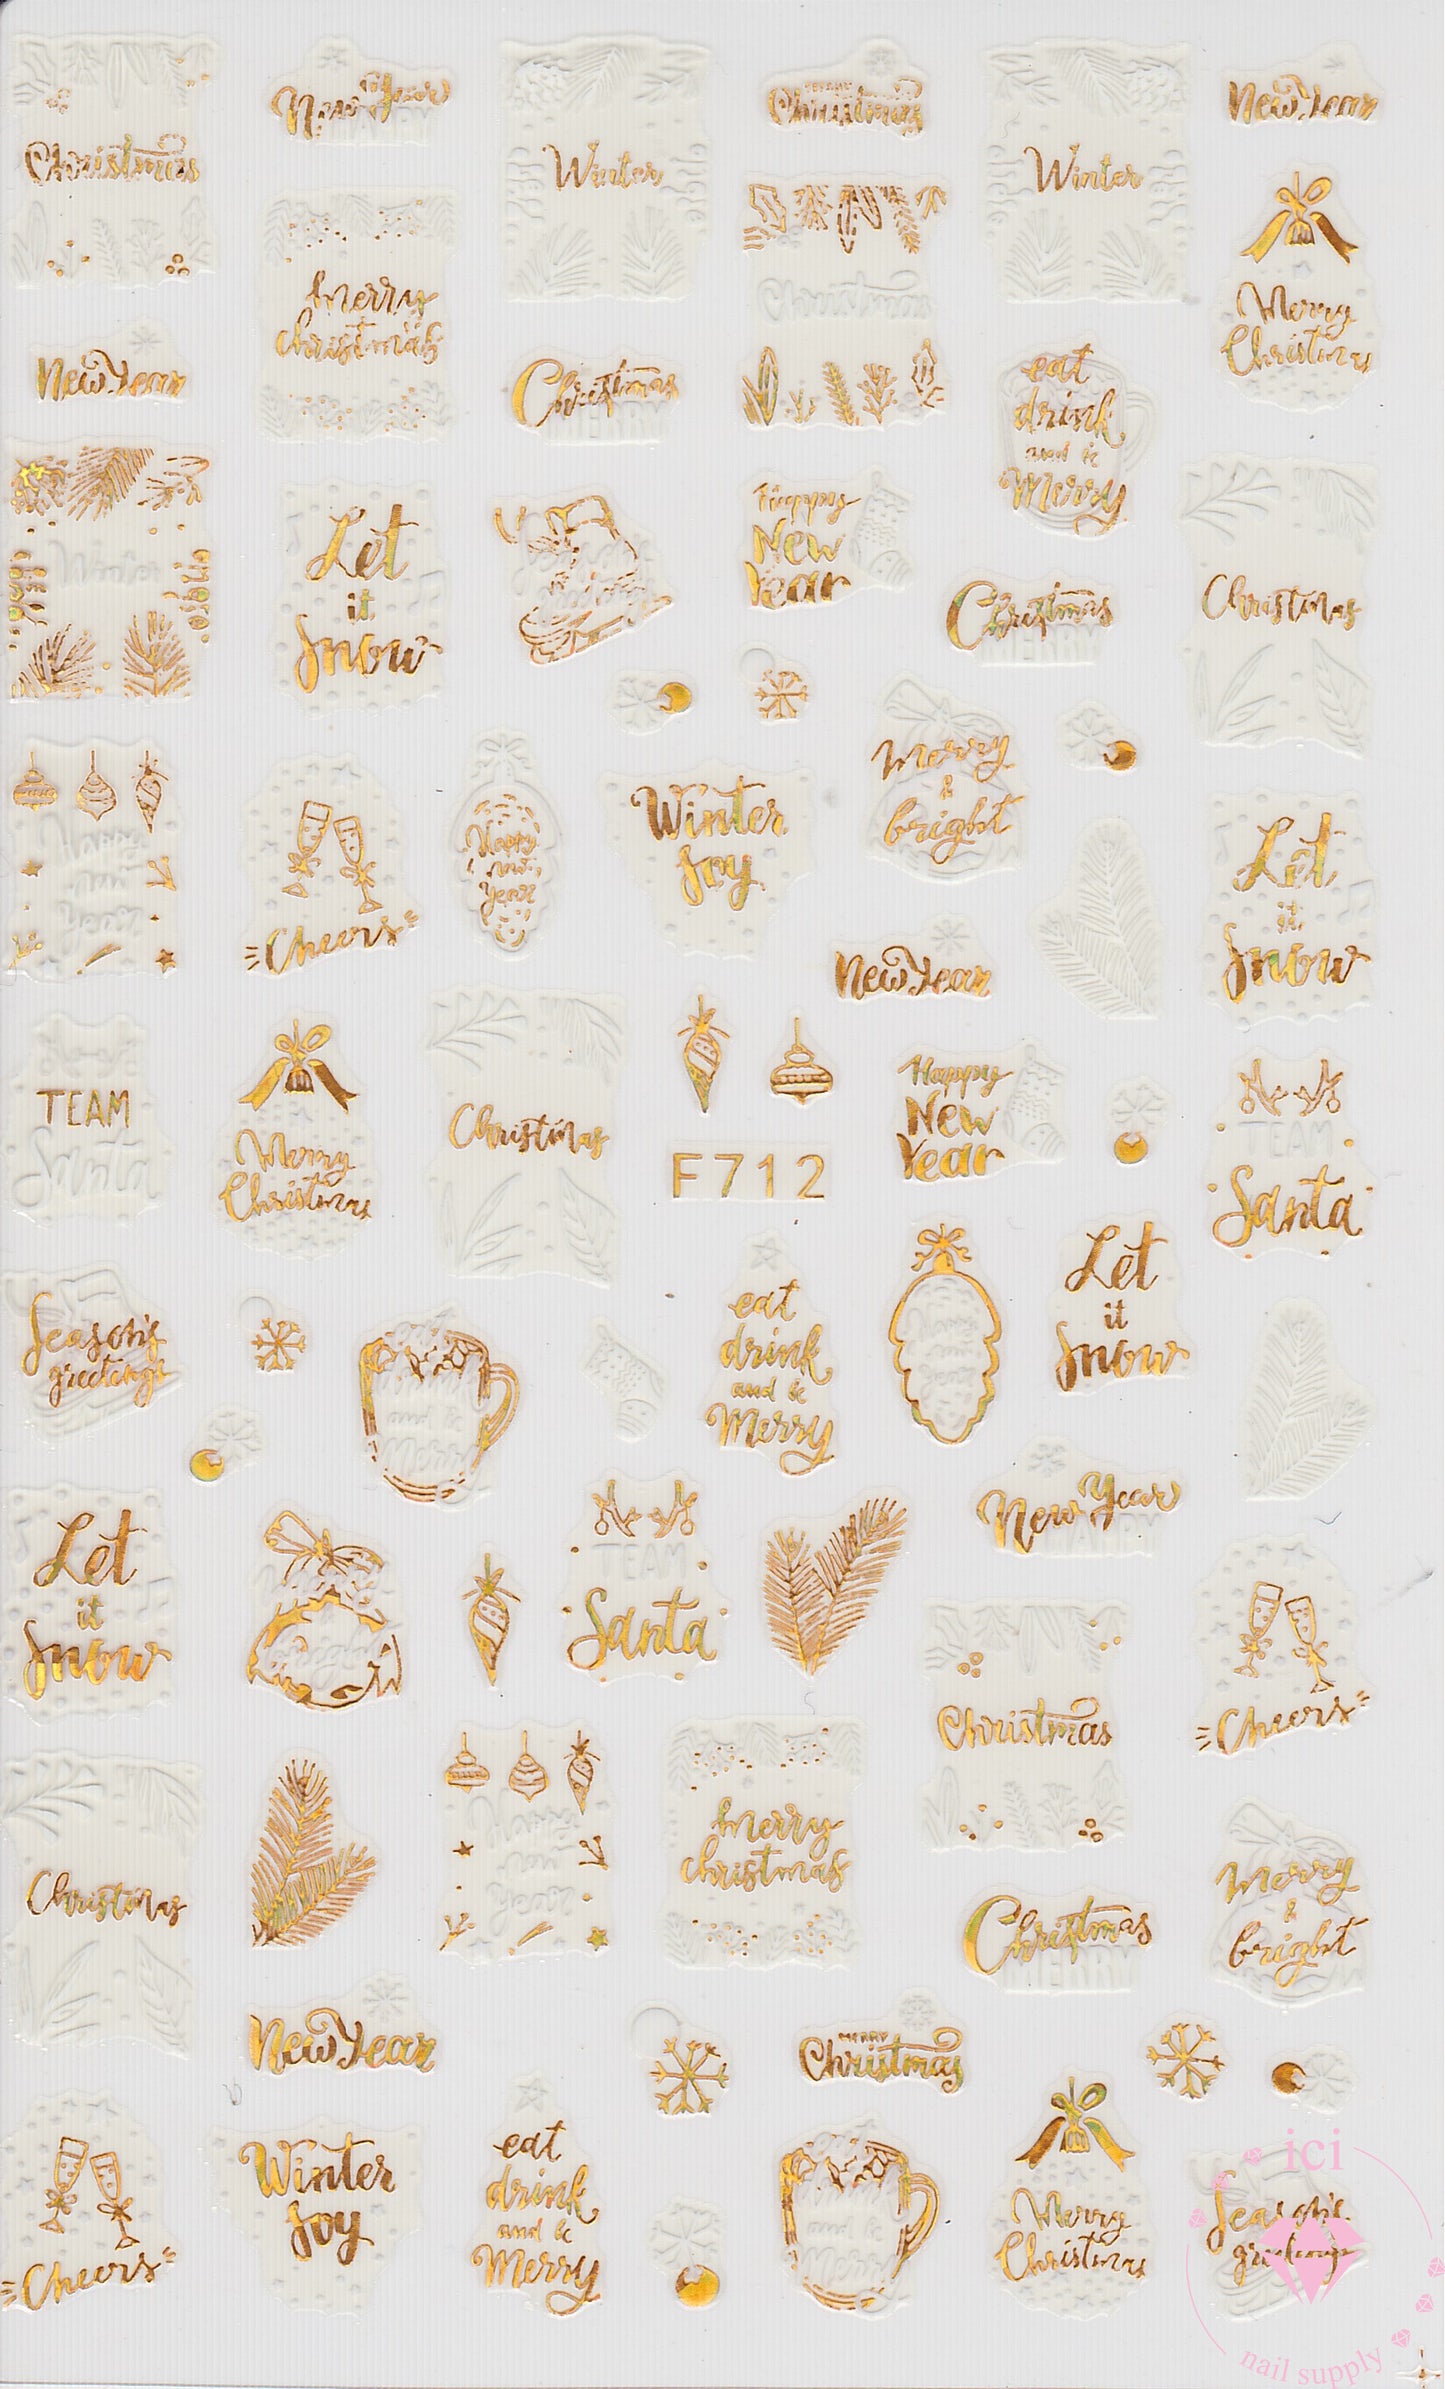 Christmas
New Year
HAPPY
Winter
MERRY
Christmas
Winter
New Year
merry
christmas
Christmas
Merry
Christmas
New Year
Christmas
MERRY
eat
drink
and be
Merry
Winter
Let
it
Snow
Season's
greetings
Happy
New
Year
Christmas
MERRY
Christmas
Happy
new
year
Cheers
Happy
new
year
Winter
Joy
Merry
&
bright
Let
it
Snow
New Year
TEAM
Santa
Merry
Christmas
Christmas
F712
Happy
New
Year
TEAM
Santa
Season's
greetings
eat
drink
and be
Merry
eat
drink
and be
Merry
Happy
new
year
Let
it
Snow
Let
it
Snow
Merry
&
bright
TEAM
Santa
New Year
HAPPY
Cheers
Christmas
Happy
new
year
merry
christmas
Christmas
Christmas
MERRY
Merry
&
bright
New Year
MERRY
Christmas
Cheers
Winter
Joy
eat
drink
and be
Merry
eat
drink
and be
Merry
Merry
Christmas
Season's
greetings
ici
nail supply